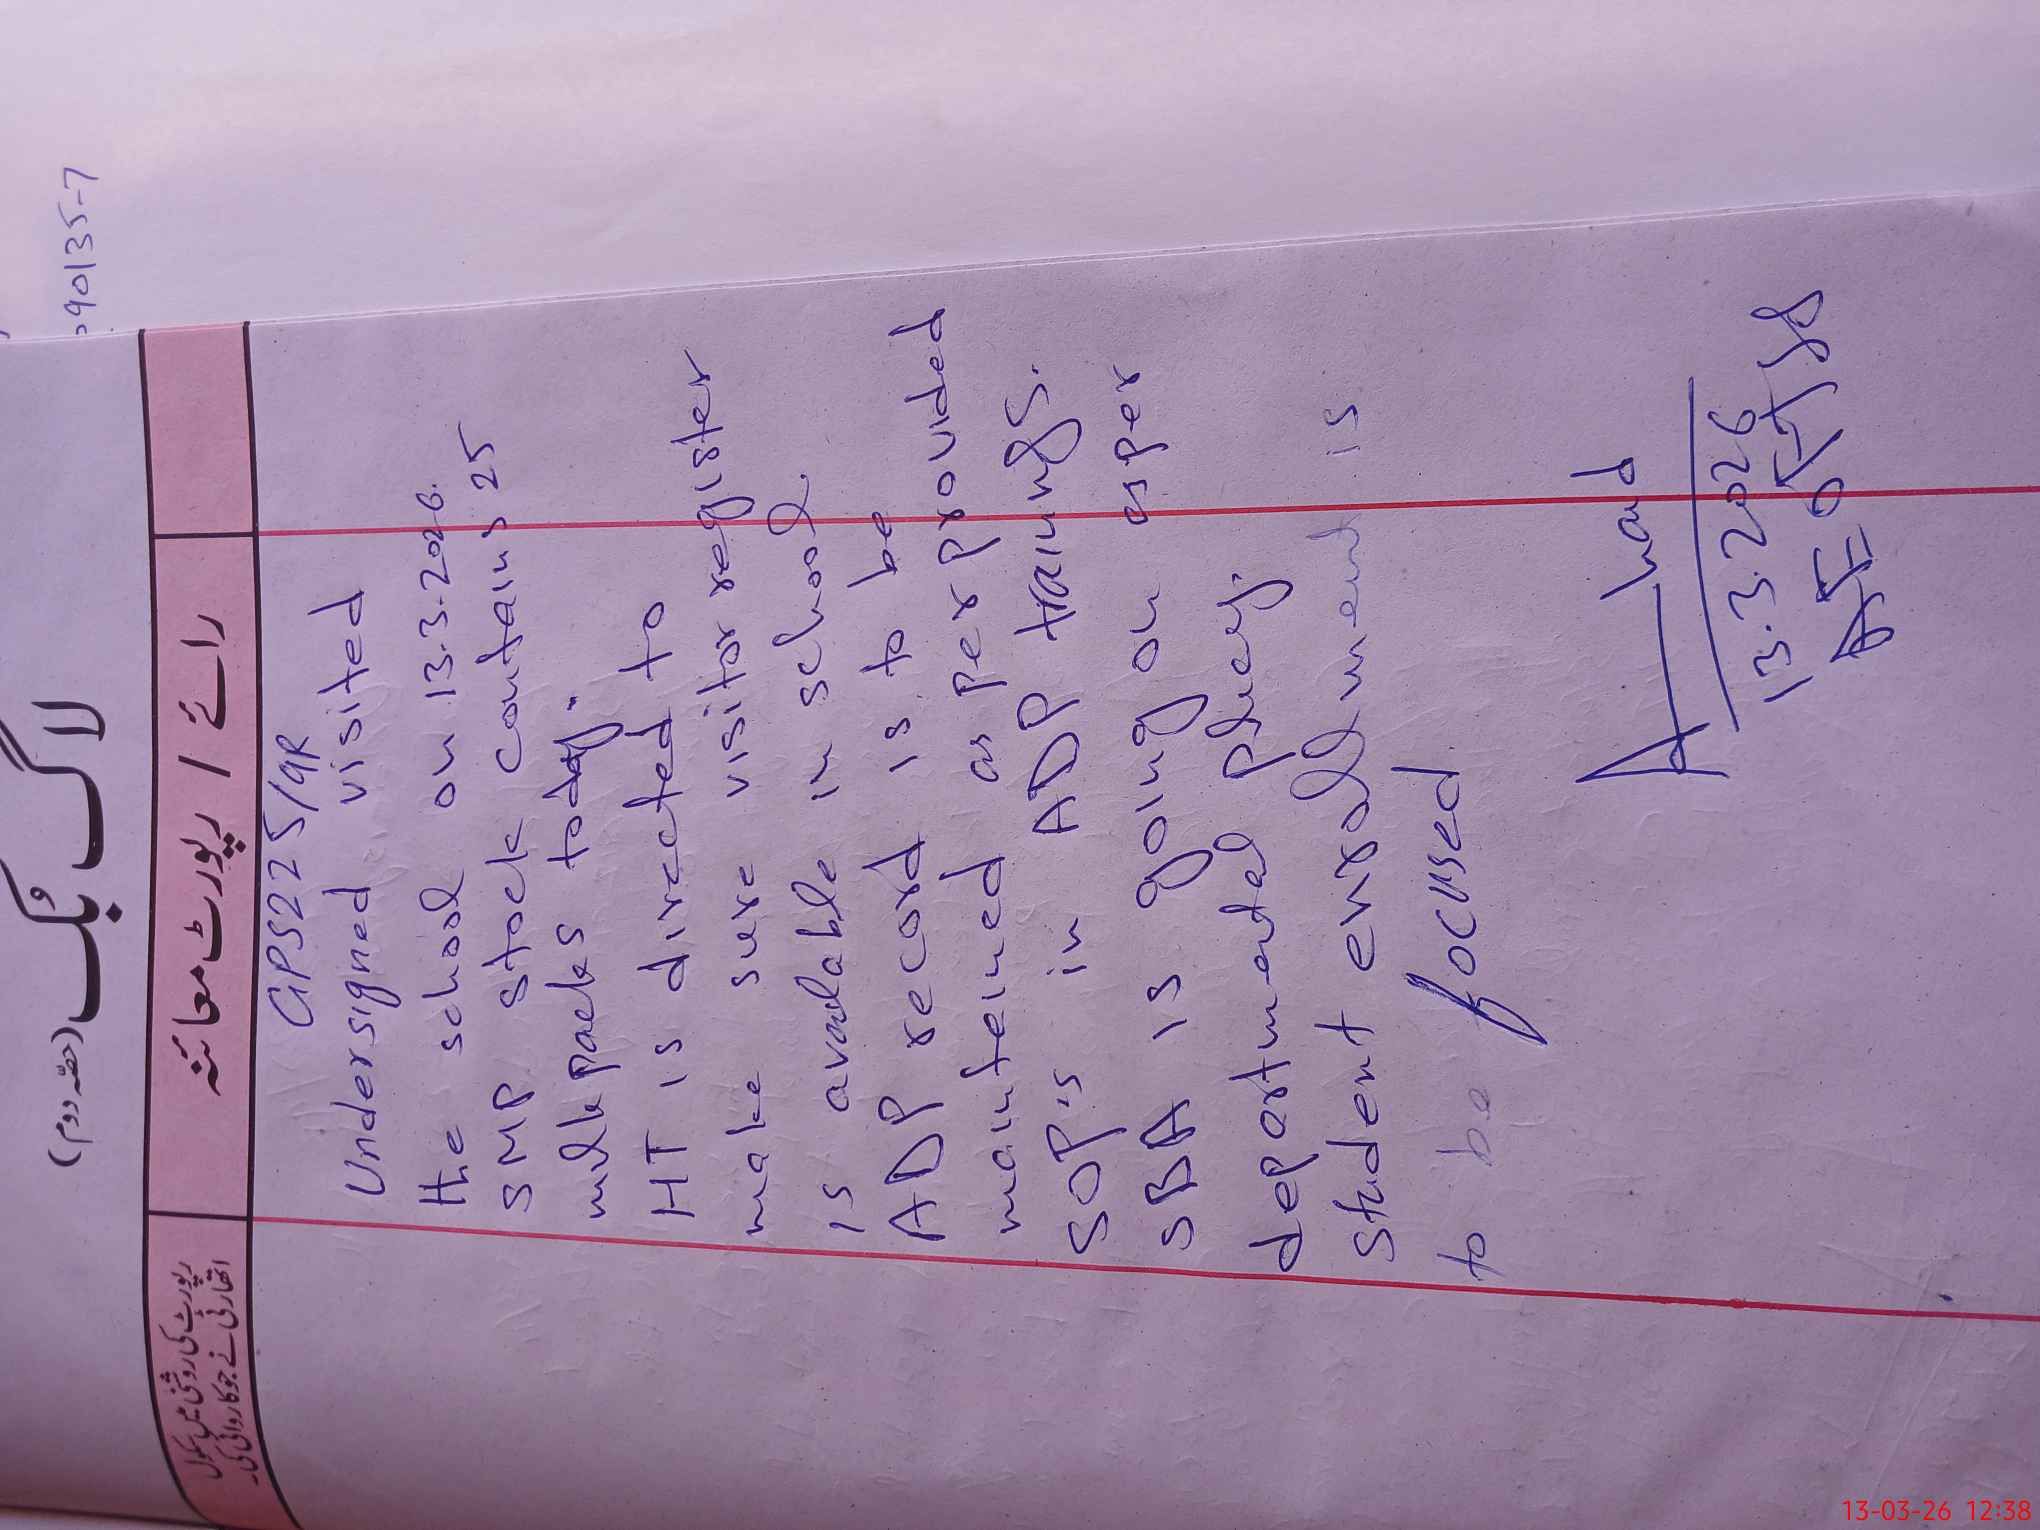 90135-7
لاگ بُک (حصّہ دوم)
رائے / رپورٹ معائنہ
رپورٹ کی روشنی میں سکول
اتھارٹی نے جو کاروائی کی۔
GPS225/9R
Undersigned visited
the school on 13.3.2026.
SMP stock contains 25
milkpacks today.
HT is directed to
make sure visitor register
is available in school
ADP record is to be
mainteined as per provided
SOP,s in ADP trainings.
SBA is going on as per
departmental
student enrollment is
to be focused
13.3.2026
AEO
13-03-26 12:38